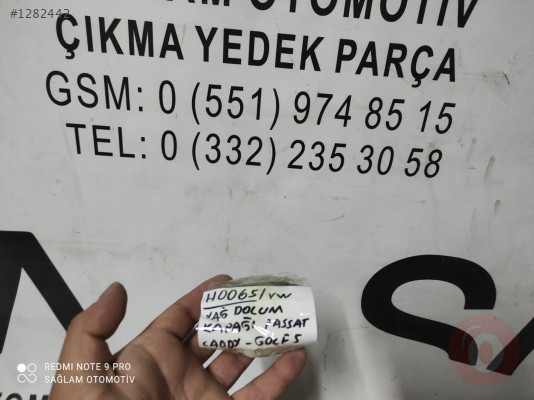 #1282442
OTOMOTİV
ÇIKMA YEDEK PARÇA
GSM: 0 (551) 974 85 15
TEL: 0 (332) 235 30 58
H0065/VW
YAĞ DOLUM
KAPAĞI PASSAT
CADDY - GOLF5
REDMI NOTE 9 PRO
SAĞLAM OTOMOTİV